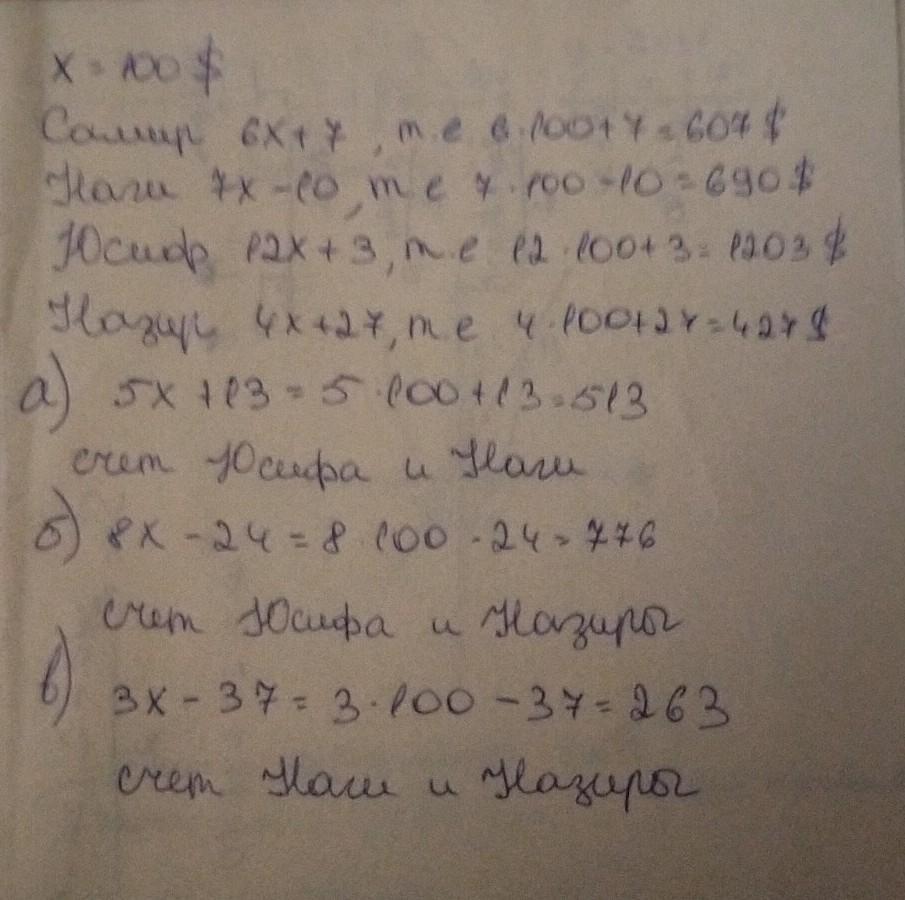 x = 100 $
Самир 6x + 7, т.е 6·100+7=607 $
Наги 7x -10, т е 7·100-10=690 $
Юсиф 12x + 3, т.е 12·100+3=1203 $
Назир 4x+27, т е 4·100+27=427 $
а) 5x +13 = 5·100+13=513
счет Юсифа и Наги
б) 8x - 24 = 8·100 - 24 = 776
счет Юсифа и Назиры
в) 3x - 37 = 3·100 - 37 = 263
счет Наги и Назиры